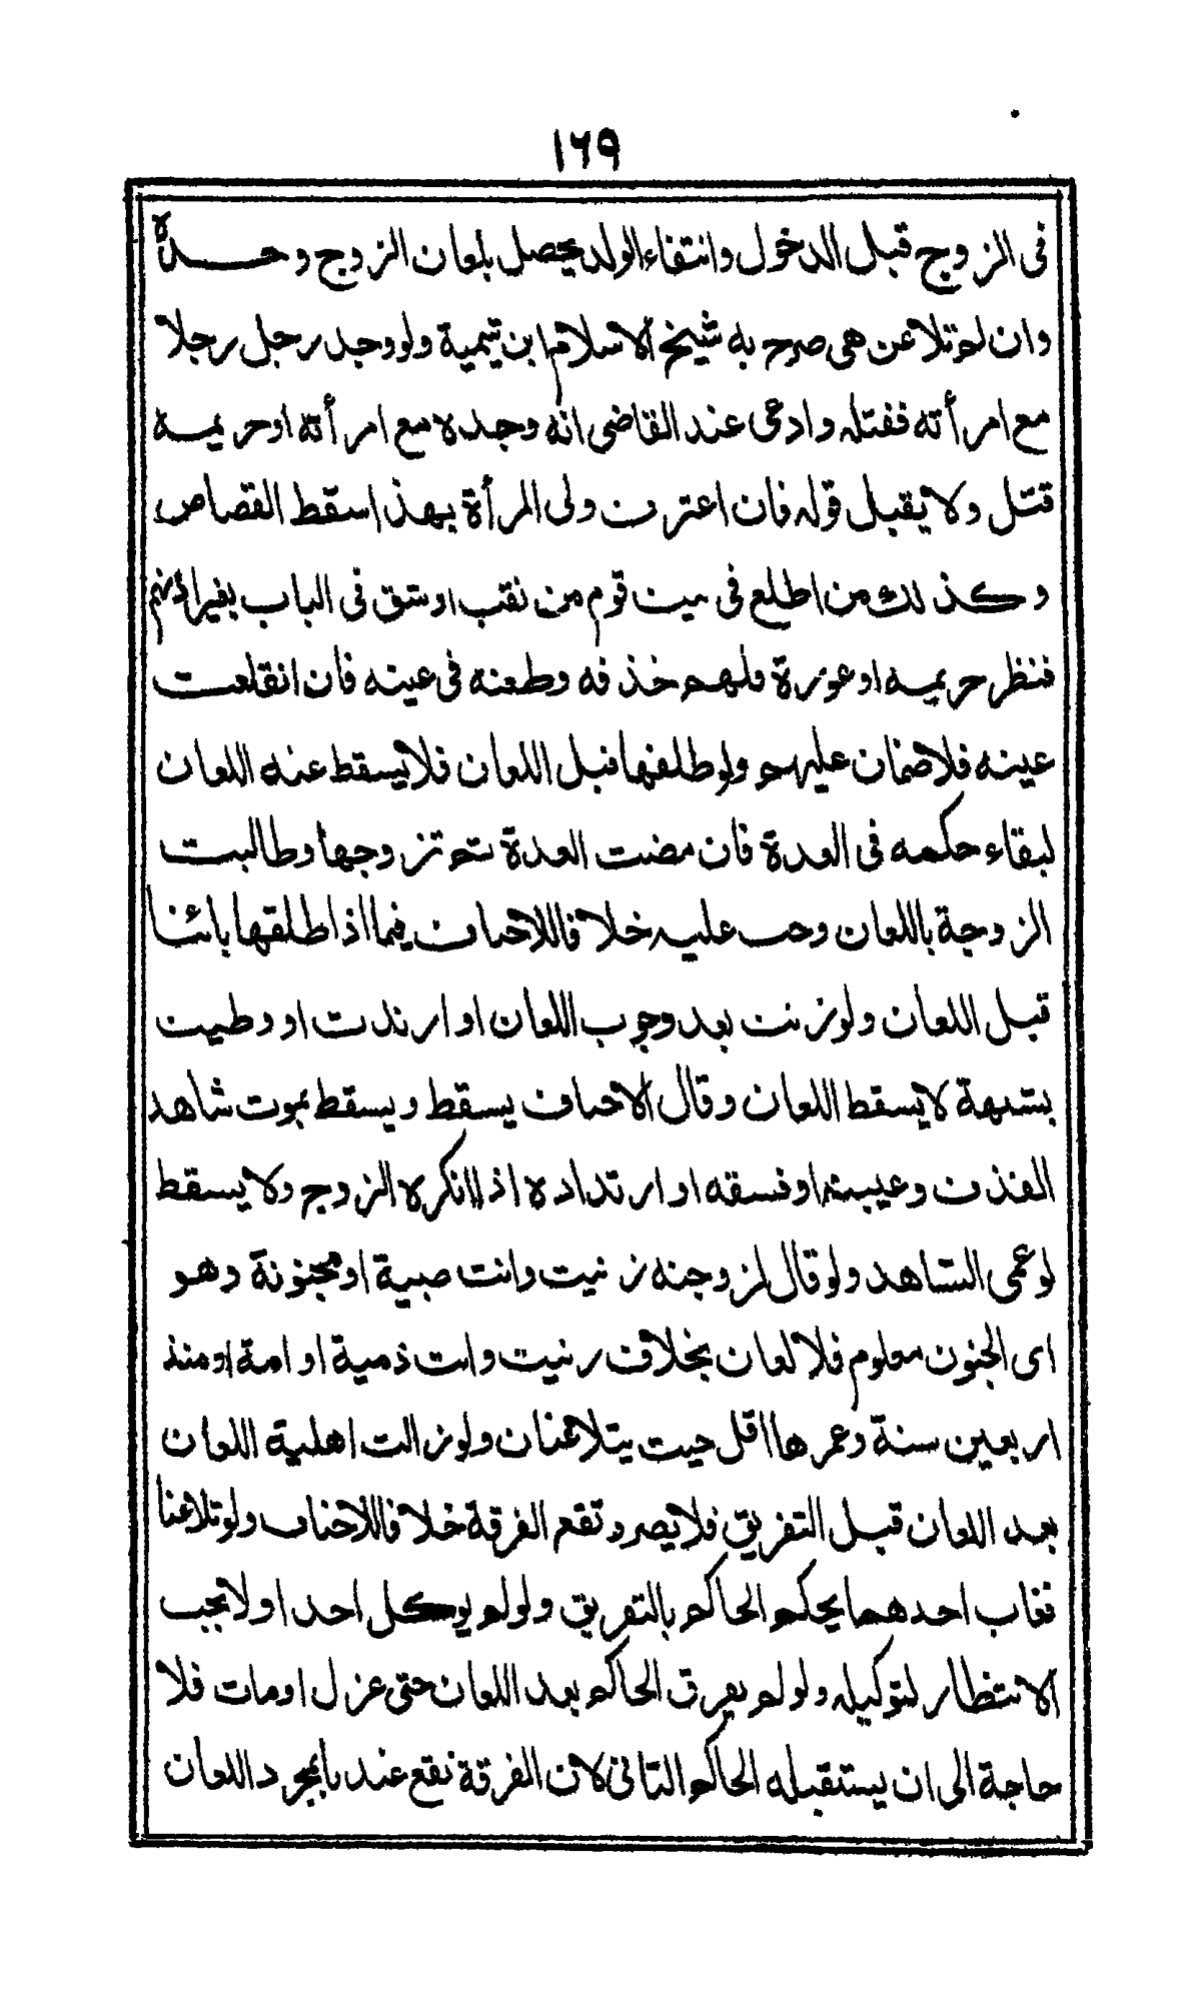 ١٦٩
فى الزوج قبل الدخول وانتفاء الولد يحصل بلعان الزوج وحده
وان لم تلاعن هى صرح به شيخ الاسلام ابن تيمية ولو وجد رجل رجلا
مع امرأته فقتله وادعى عند القاضى انه وجده مع امرأته او حريمه
قتل ولا يقبل قوله فان اعترف ولى المرأة بهذا سقط القصاص
وكذلك من اطلع فى بيت قوم من نقب او شق فى الباب بغير اذنهم
فنظر حريمه او عورة فلهم خذفه وطعنه فى عينه فان انقلعت
عينه فلا ضمان عليهم ولو طلقها قبل اللعان فلا يسقط عنه اللعان
لبقاء حكمه فى العدة فان مضت العدة ثم تزوجها وطالبت
الزوجة باللعان وجب عليه خلافا للاحناف فيما اذا طلقها بائنا
قبل اللعان ولو زنت بعد وجوب اللعان او ارتدت او وطيت
بشبهة لا يسقط اللعان وقال الاحناف يسقط ويسقط بموت شاهد
القذف وغيبته او فسقه او ارتداده اذا انكره الزوج ولا يسقط
لو عمى الشاهد ولو قال لزوجته زنيت وانت صبية او مجنونة وهو
اى الجنون معلوم فلا لعان بخلاف زنيت وانت ذمية او امة او منذ
اربعين سنة وعمرها اقل حيث يتلاعنان ولو زالت اهلية اللعان
بعد اللعان قبل التفريق فلا يضر وتقع الفرقة خلافا للاحناف ولو تلاعنا
فغاب احدهما يحكم الحاكم بالتفريق ولو لم يوكل احدا ولا يجب
الانتظار لتوكيله ولو لم يفرق الحاكم بعد اللعان حتى عزل او مات فلا
حاجة الى ان يستقبله الحاكم الثانى لان الفرقة تقع عندنا بمجرد اللعان